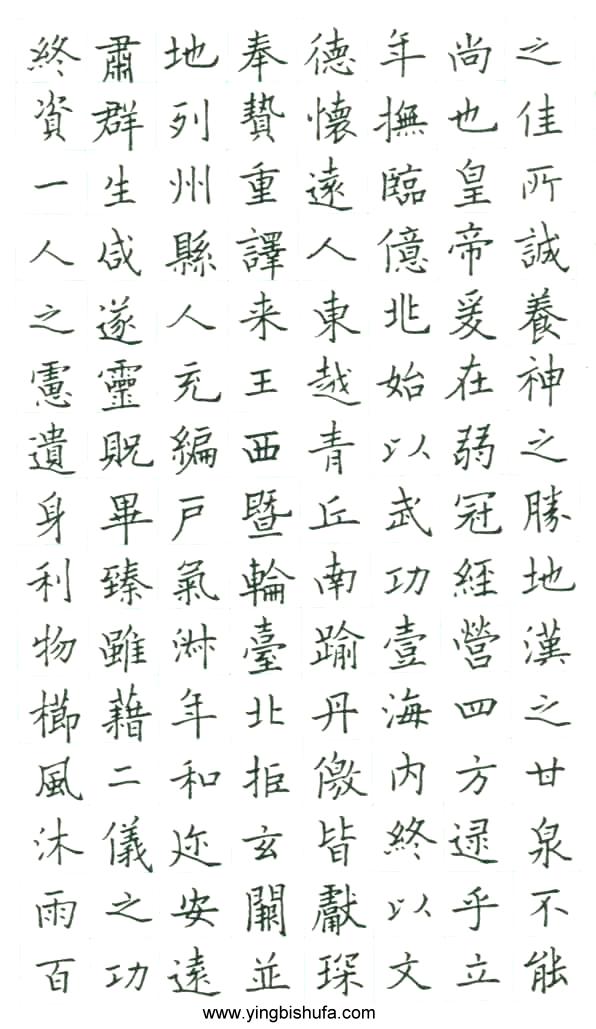 之佳所誠養神之勝地漢之甘泉不能
尚也皇帝爰在弱冠經營四方逮乎立
年撫臨億兆始以武功壹海内終以文
德懷遠人東越青丘南踰丹儌皆獻琛
奉贄重譯来王西暨輪臺北拒玄闕並
地列州縣人充編戶氣淑年和迩安遠
肅群生咸遂靈貺畢臻雖藉二儀之功
終資一人之慮遺身利物櫛風沐雨百
www.yingbishufa.com